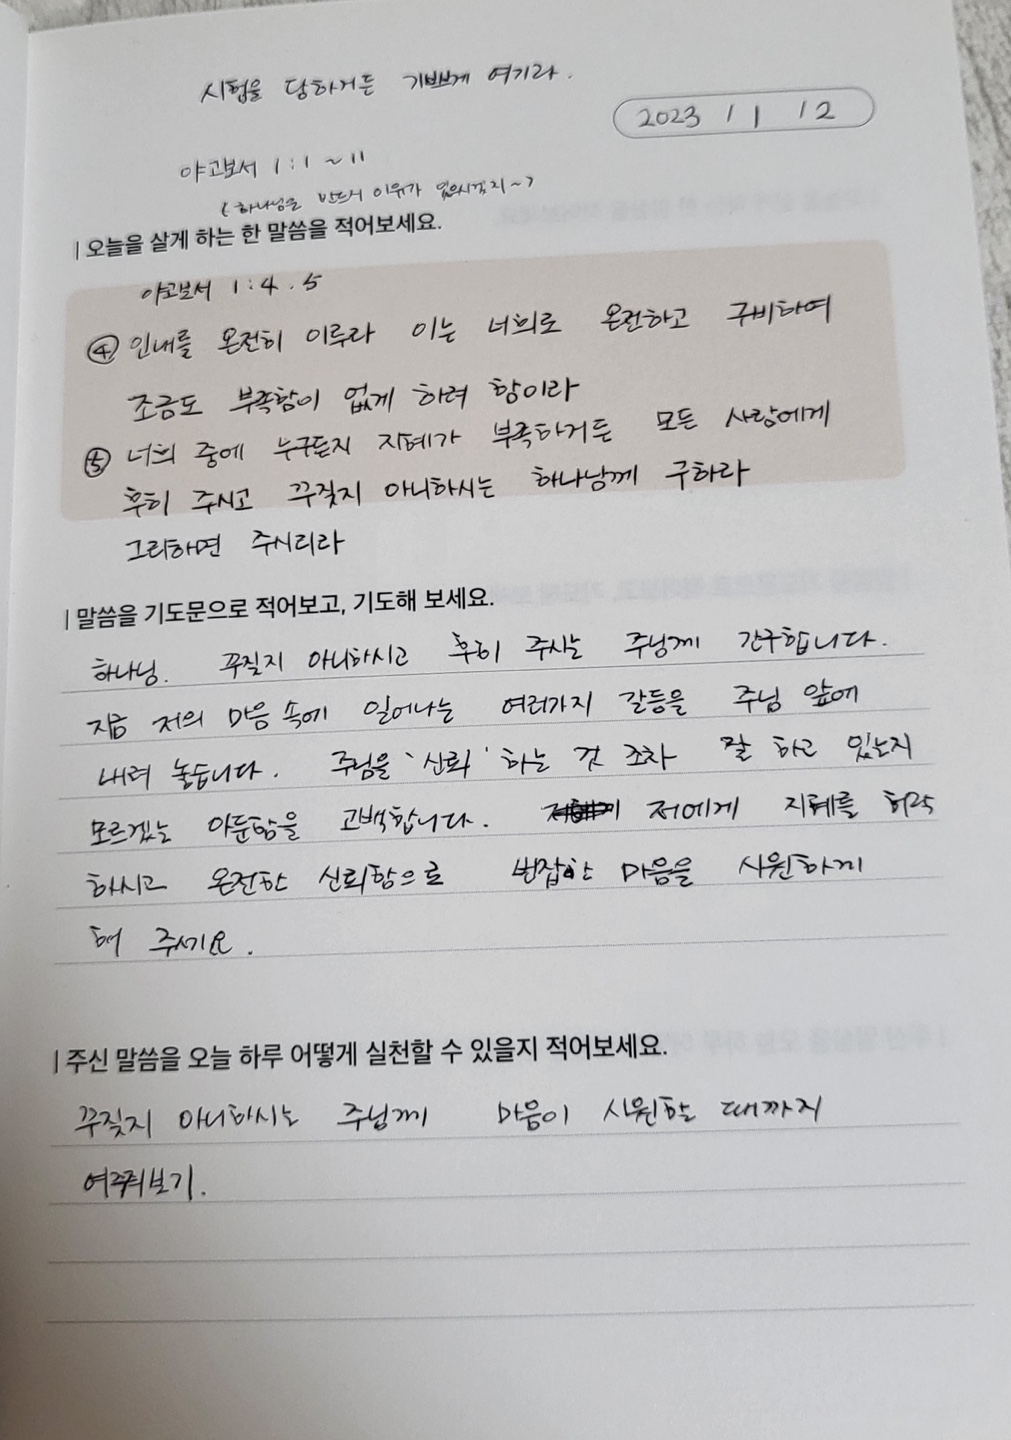 시험을 당하거든 기쁘게 여기라.
2023 11 12
야고보서 1:1 ~ 11
(하나님은 반드시 이유가 있으시겠지~)
| 오늘을 살게 하는 한 말씀을 적어보세요.
야고보서 1:4.5
④ 인내를 온전히 이루라 이는 너희로 온전하고 구비하여
조금도 부족함이 없게 하려 함이라
⑤ 너희 중에 누구든지 지혜가 부족하거든 모든 사람에게
후히 주시고 꾸짖지 아니하시는 하나님께 구하라
그리하면 주시리라
| 말씀을 기도문으로 적어보고, 기도해 보세요.
하나님. 꾸짖지 아니하시고 후히 주시는 주님께 간구합니다.
지금 저의 마음 속에 일어나는 여러가지 갈등을 주님 앞에
내려 놓습니다. 주님을 '신뢰' 하는 것 조차 잘 하고 있는지
모르겠는 아둔함을 고백합니다. 저에게 지혜를 허락
하시고 온전한 신뢰함으로 번잡한 마음을 시원하게
해 주세요.
| 주신 말씀을 오늘 하루 어떻게 실천할 수 있을지 적어보세요.
꾸짖지 아니하시는 주님께 마음이 시원할 때까지
여쭤보기.